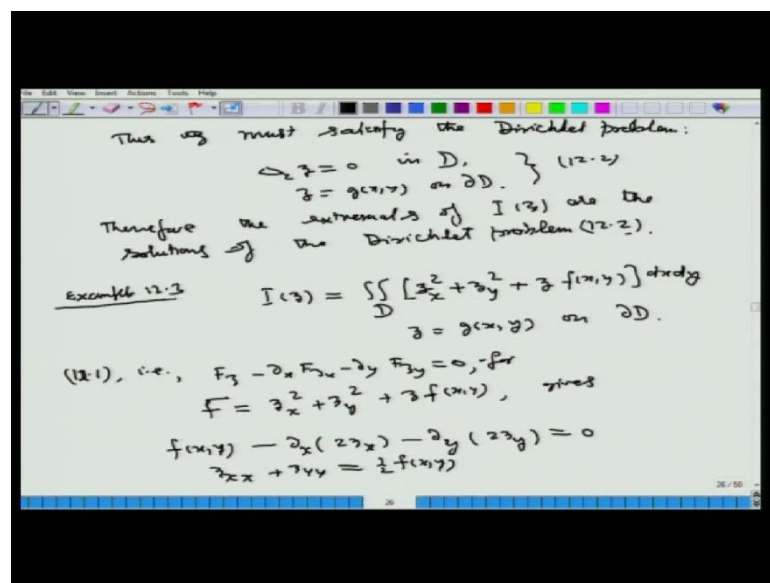 File Edit View Insert Actions Tools Help
Thus z must satisfy the Dirichlet problem:
Δ₂ z = 0 in D,
z = g(x,y) on ∂D. } (12.2)
Therefore the extremals of I(z) are the
solutions of the Dirichlet problem (12.2).
Example 12.3 I(z) = ∬_D [z_x² + z_y² + z f(x,y)] dxdy
z = g(x,y) on ∂D.
(12.1), i.e., F_z - ∂_x F_{z_x} - ∂_y F_{z_y} = 0, for
F = z_x² + z_y² + z f(x,y), gives
f(x,y) - ∂_x(2z_x) - ∂_y(2z_y) = 0
z_xx + z_yy = ½ f(x,y)
26 / 50
26